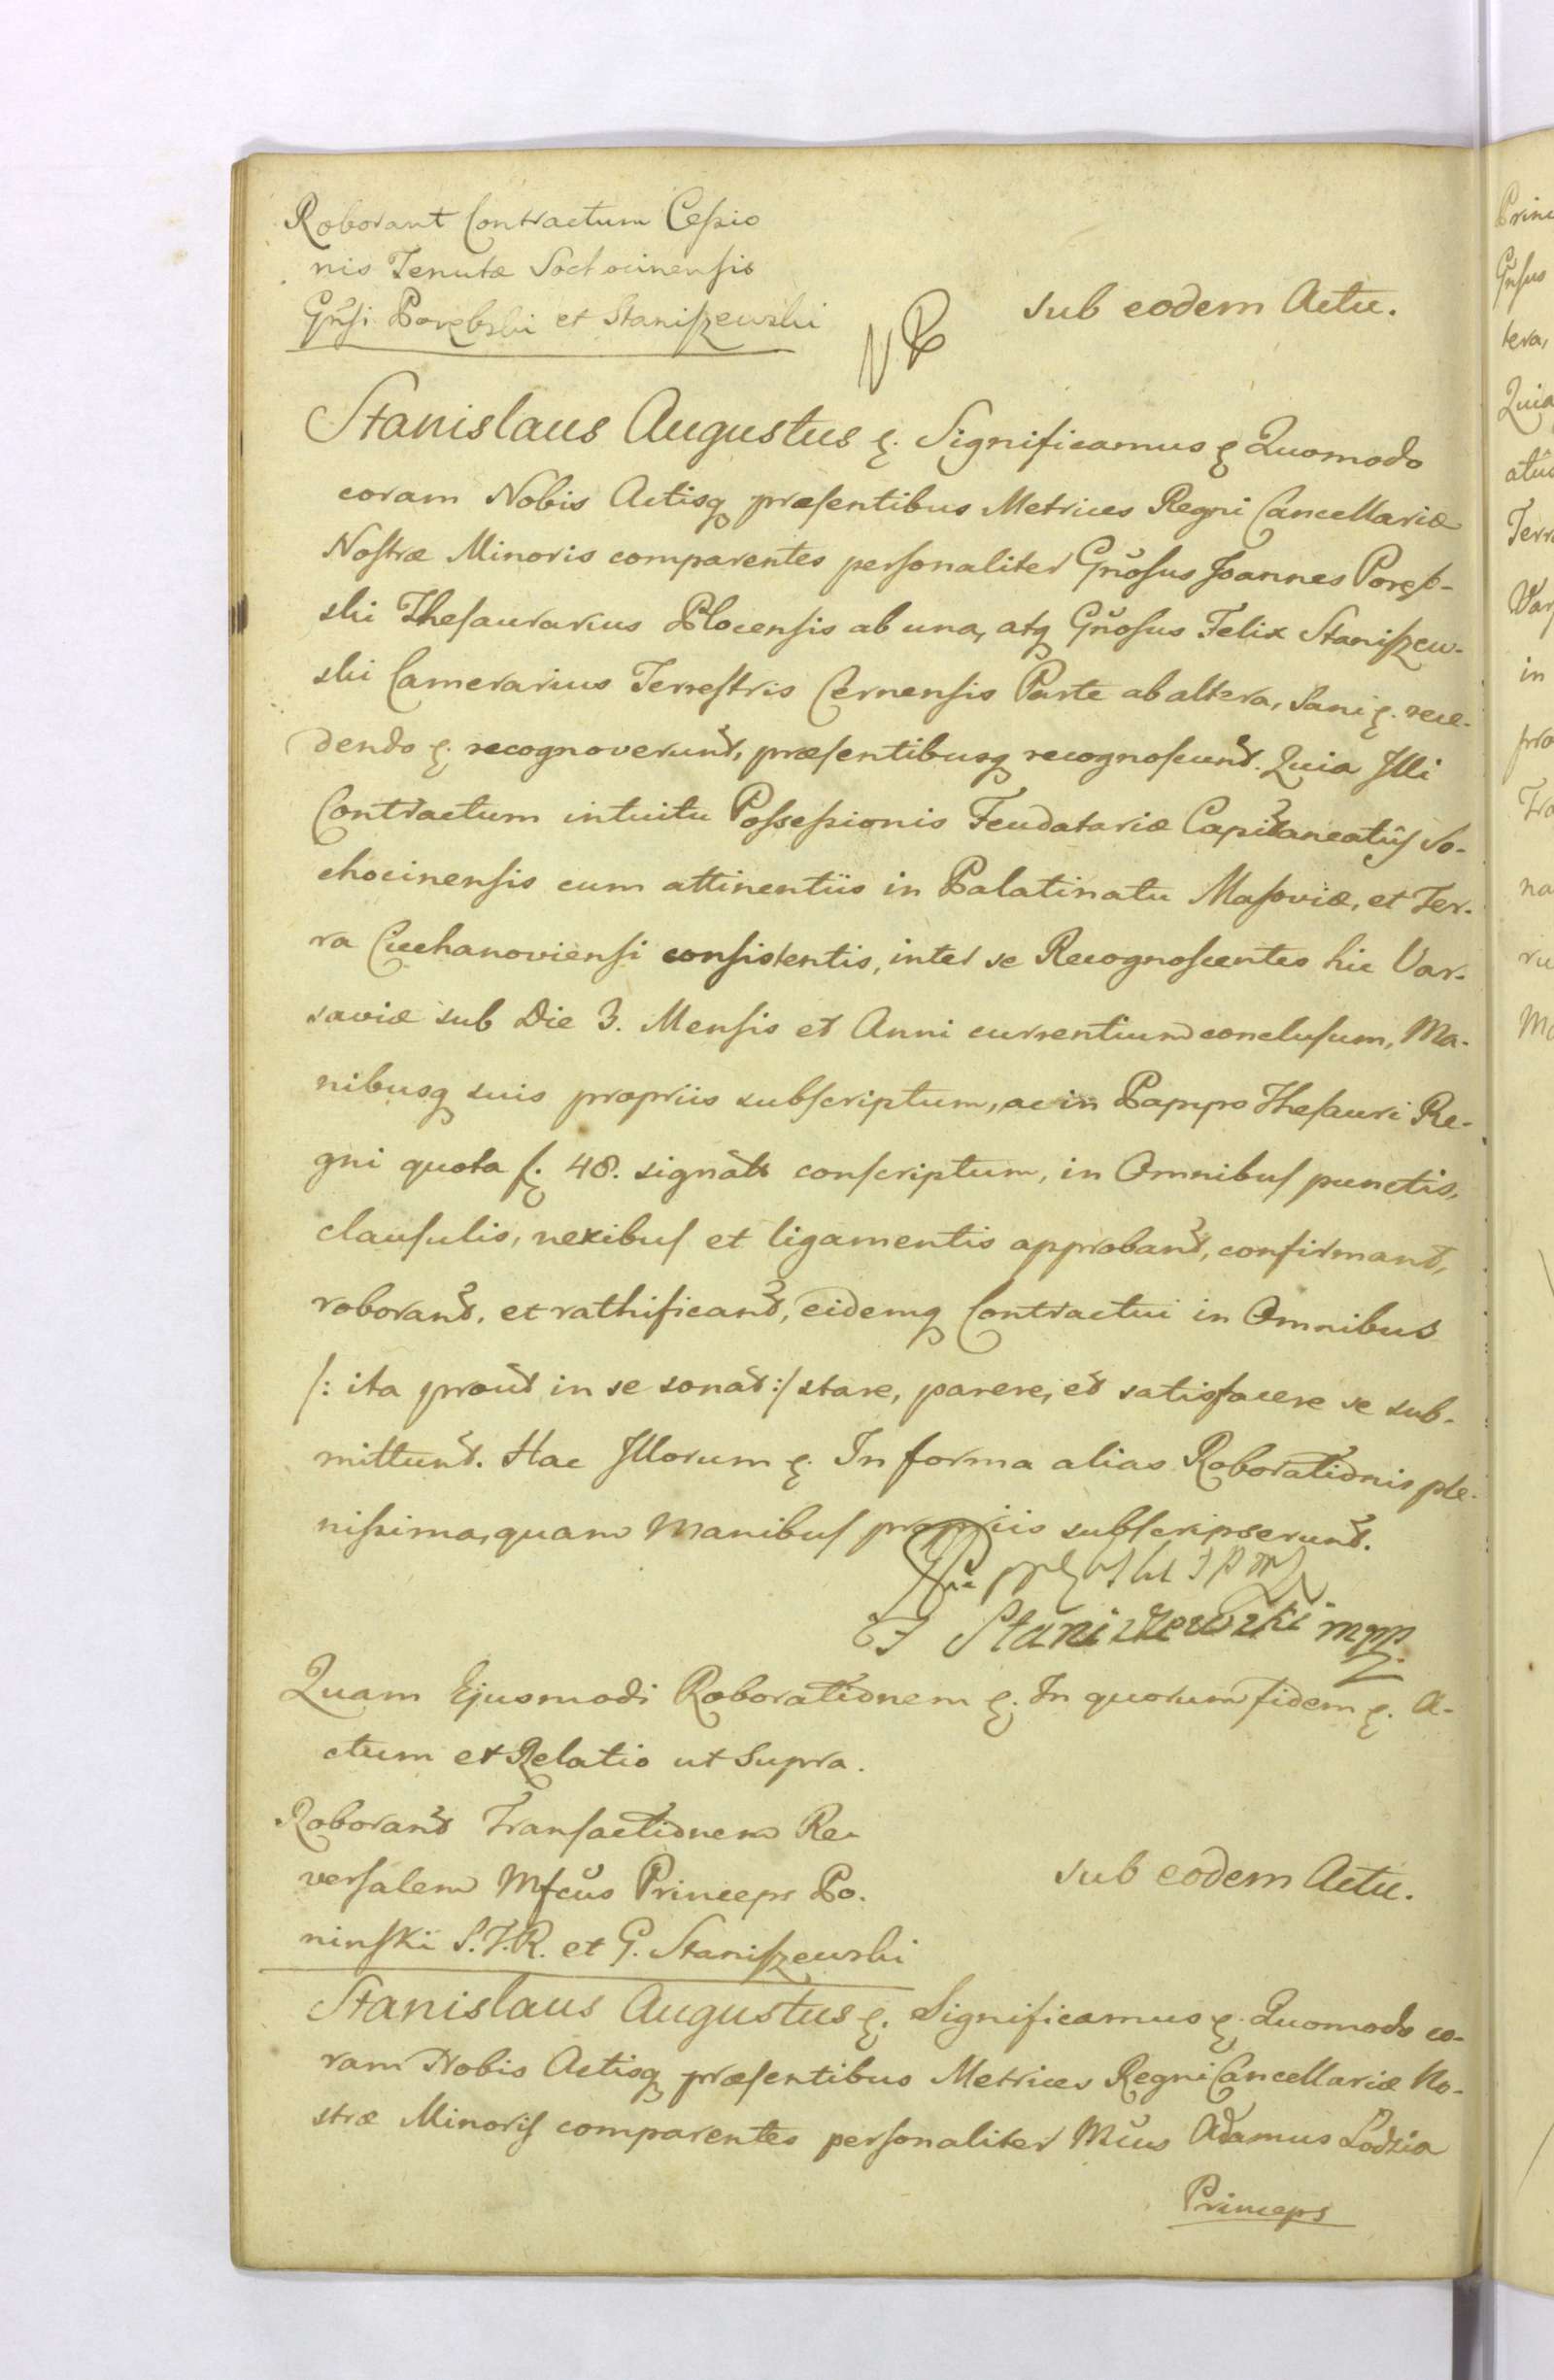 Roborant Contractum Ceßio
nis Tenutæ Sochocinensis
Gnsi Porębski et Staniszewski
NB
sub eodem Actu.
Stanislaus Augustus ę. Significamus ę Quomodo
coram Nobis Actisq præsentibus Metrices Regni Cancellariæ
Nostræ Minoris comparentes personaliter Gnosus Joannes Poręb-
ski Thesaurarius Plocensis ab una, atq Gnosus Felix Staniszew-
ski Camerarius Terrestris Cernensis Parte ab altera, sani ę. rece-
dendo ę. recognoverunt, præsentibusq recognoscunt. Quia Illi
Contractum intuitu Possessionis Feudatariæ Capitaneatûs So-
chocinensis cum attinentiis in Palatinatu Masoviæ, et Ter-
ra Ciechanoviensi consistentis, inter se Recognoscentes hic Var-
saviæ sub Die 3. Mensis et Anni currentium conclusum, Ma-
nibusq suis propriis subscriptum, ac in Papyro Thesauri Re-
gni quota f. 48. signata conscriptum, in Omnibus punctis,
clausulis, nexibus et ligamentis approbant, confirmant,
roborant, et rathificant, eidemq Contractui in Omnibus
/: ita prout in se sonat :/ stare, parere, et satisfacere se sub-
mittunt. Hac Illorum ę. In forma alias Roborationis ple-
nissima, quam Manibus propriis subscripserunt.
F Staniszewski mpp.
Quam Ejusmodi Roborationem ę. In quorum fidem ę. A-
ctum et Relatio ut Supra.
Roborant Transactionem Re-
versalem Mfcus Princeps Po-
ninski S.T.R. et G. Staniszewski
sub eodem Actu.
Stanislaus Augustus ę. Significamus ę. Quomodo co-
ram Nobis Actisq præsentibus Metrices Regni Cancellariæ No-
stræ Minoris comparentes personaliter Mcus Adamus Lodzia
Princeps